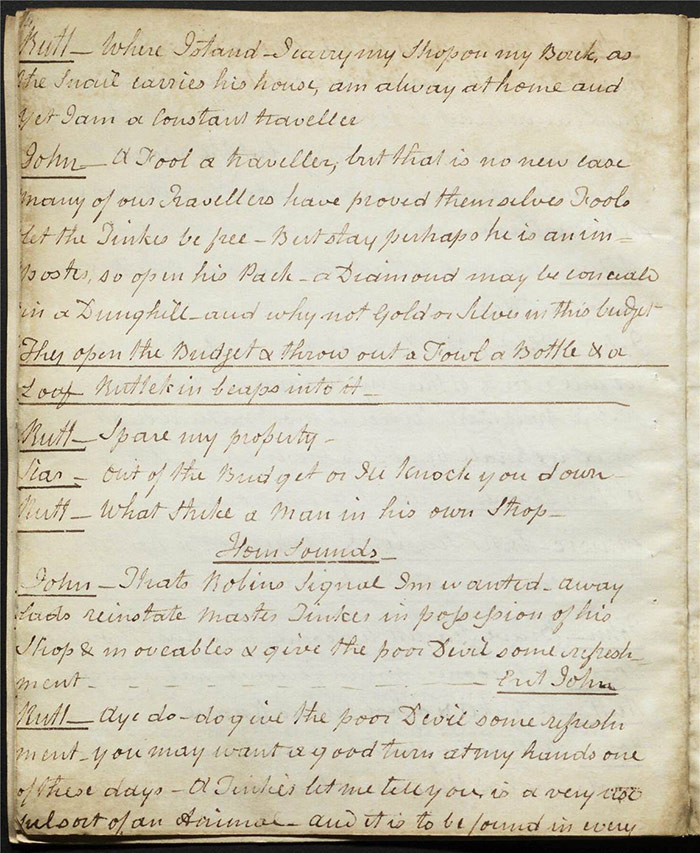 Rutt – Where I stand – I carry my Shop on my Back, as
the Snail carries his house, am alway at home and
yet I am a Constant traveller
John – A Fool a traveller, but that is no new case
many of our Travellers have proved themselves Fools
let the Tinker be free – But stay perhaps he is an im=
poster, so open his Pack – a Diamond may be conceald
in a Dunghill – and why not Gold or Silver in this budget
They open the Budget & throw out a Fowl a Bottle & a
Loaf Ruttekin leaps into it –
Rutt – Spare my property –
Scar – Out of the Budget or Ill Knock you down –
Rutt – What strike a Man in his own Shop –
Horn Sounds –
John – Thats Robins Signal Im wanted – away
lads reinstate Master Tinker in possession of his
Shop & moveables & give the poor Devil some refresh
ment – – – – – – Exit John
Rutt – Aye do – do give the poor Devil some refresh
ment – you may want a good turn at my hands one
of these days – A Tinker let me tell you, is a very use
ful sort of an Animal – and it is to be found in every